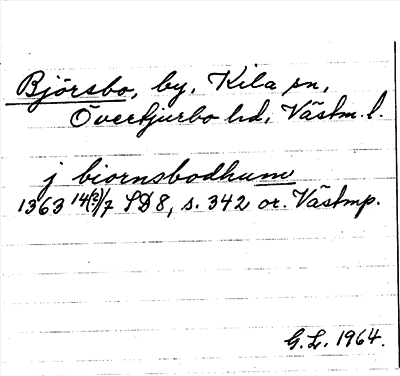 Björsbo, by, Kila sn,
Övertjurbo hd, Västm. l.
j biornsbodhum
1363 14(?)/7 SD 8, s. 342 or. Västmp.
G.L. 1964.